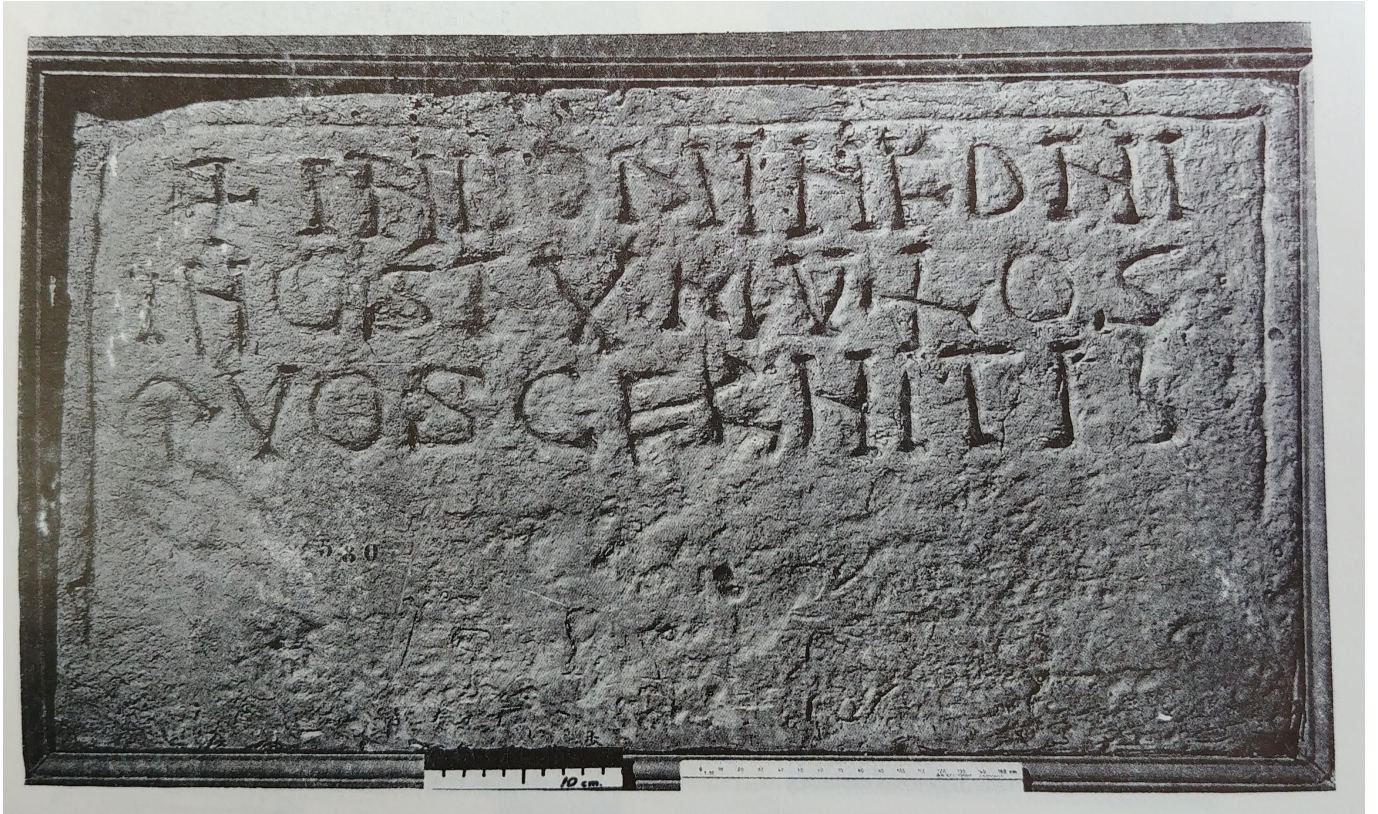 + IN NOMINE DNI
IN OS TVMVLOS
QVOS CERNITIS
580
10 cm.